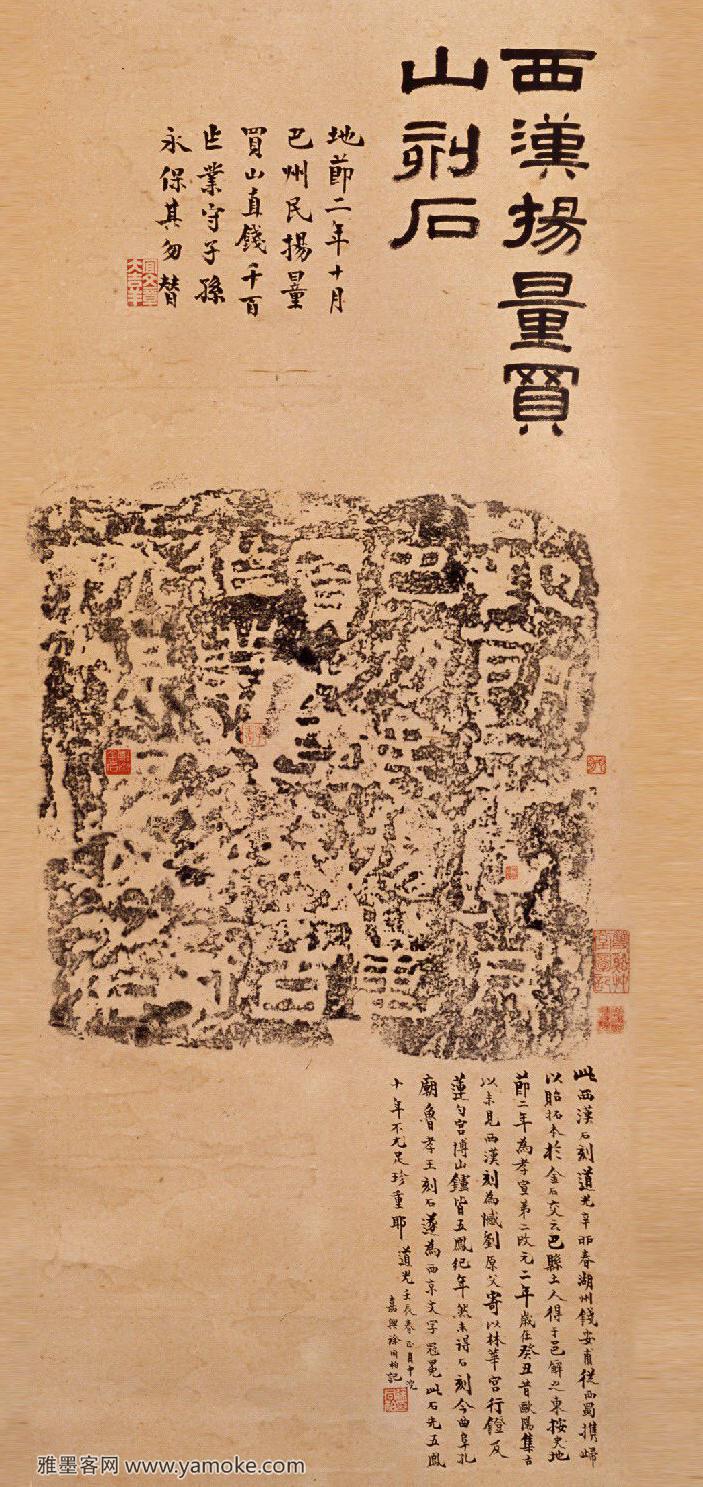 西漢揚量買
山刻石
地節二年十月
巴州民揚量
買山直錢千百
作業守子孫
永保其毋替
此西漢石刻道光辛卯春湖州錢安甫從西蜀携歸
以貽拓本於金石交云巴縣土人得于邑廨之東按史地
節二年為孝宣第二改元二年歲在癸丑昔歐陽集古
以未見西漢刻為憾劉原父寄以林華宮行鐙及
蓮勺宮博山鑪皆五鳳紀年然未得石刻今曲阜孔
廟魯孝王刻石遂為西京文字冠冕此石先五鳳
十年不尤足珍重耶 道光壬辰春正月中浣
嘉興徐同柏記
雅墨客网 www.yamoke.com